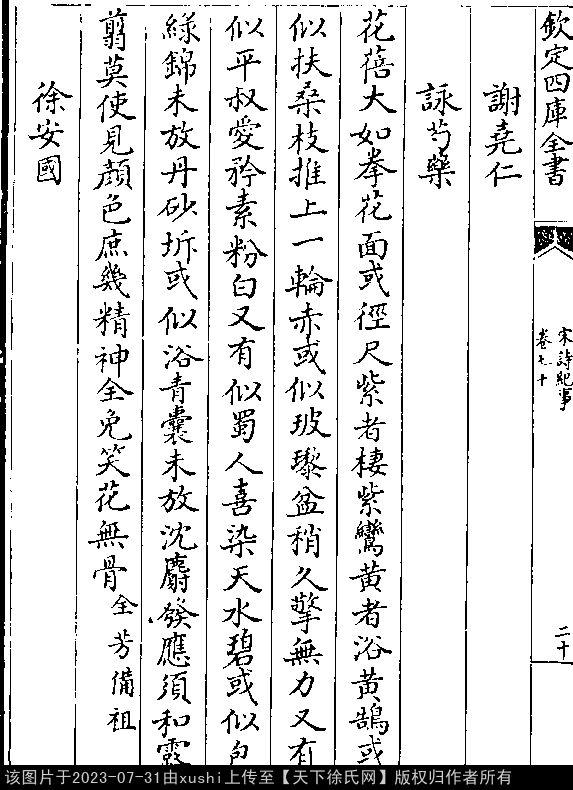 欽定四庫全書
宋詩紀事
卷七十
二十
謝堯仁
詠芍藥
花蓓大如拳花面或徑尺紫者棲紫鸞黄者浴黄鵠或
似扶桑枝推上一輪赤或似玻瓈盆稍久擎無力又有
似平叔愛矜素粉白又有似蜀人喜染天水碧或似
緑錦未放丹砂坼或似浴青囊未放沈麝發應須和露
翦莫使見顔色庶幾精神全免笑花無骨全芳備祖
徐安國
该图片于2023-07-31由xushi上传至【天下徐氏网】版权归作者所有